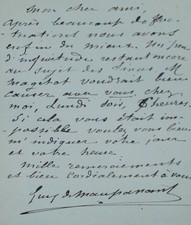 Mon cher ami,
Après beaucoup de
nous avons
enfin du mieux. Un peu
d'inquiétude restant encore
au sujet des
voudrait bien
causer avec vous, chez
moi, Lundi soir, heures.
Si cela vous était im-
possible voulez vous bien
m'indiquer votre jour
et votre heure
Mille remerciements
et bien cordialement à vous
Guy de Maupassant